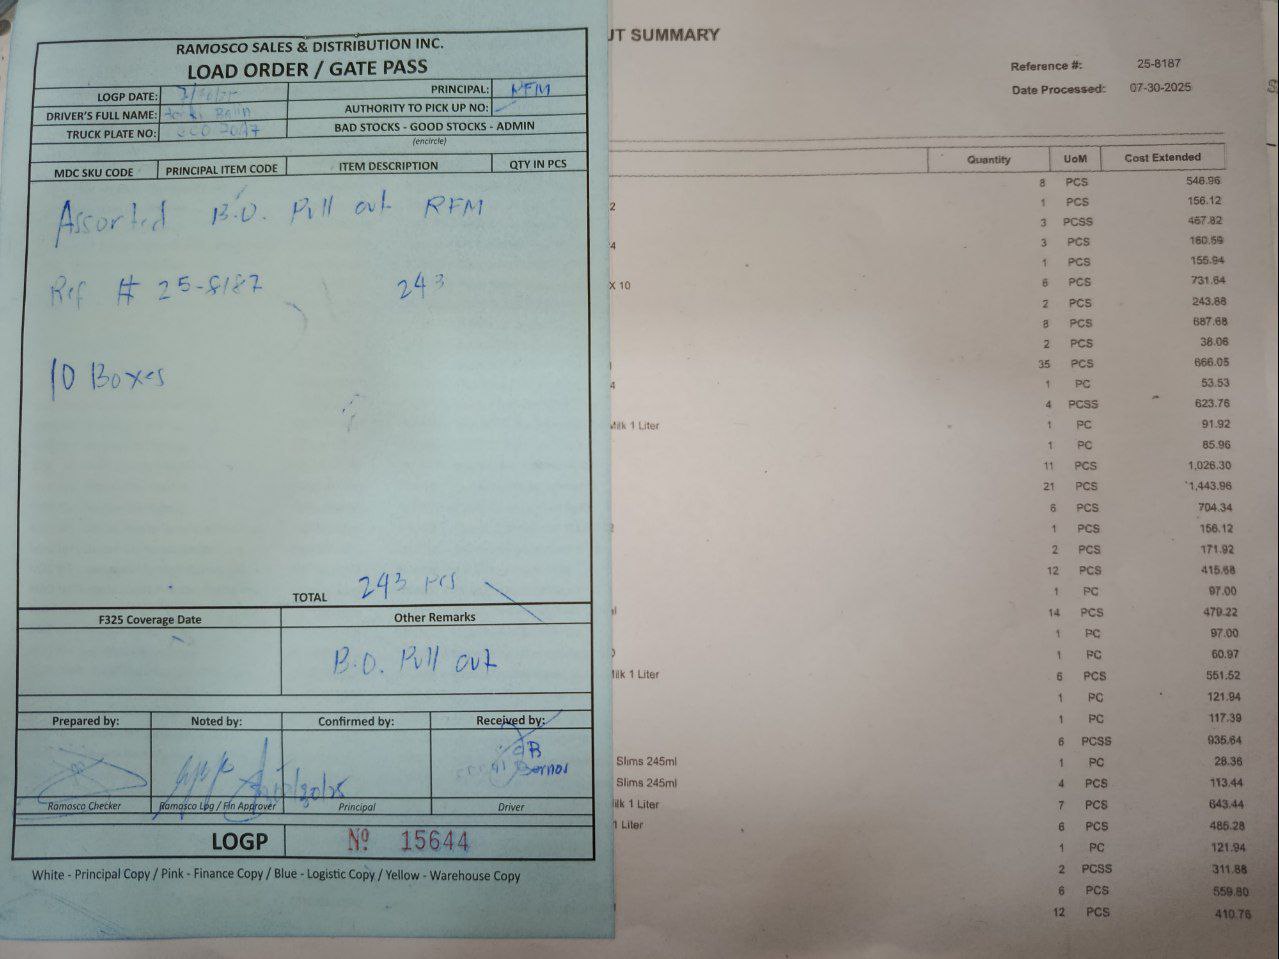 RAMOSCO SALES & DISTRIBUTION INC.
LOAD ORDER / GATE PASS
LOGP DATE:
PRINCIPAL: RFM
DRIVER'S FULL NAME:
AUTHORITY TO PICK UP NO:
TRUCK PLATE NO:
BAD STOCKS - GOOD STOCKS - ADMIN
(encircle)
MDC SKU CODE PRINCIPAL ITEM CODE ITEM DESCRIPTION QTY IN PCS
Assorted B.O. Pull out RFM
Ref # 25-8187 243
10 Boxes
TOTAL 243 PCS
F325 Coverage Date Other Remarks
B.O. Pull out
Prepared by: Noted by: Confirmed by: Received by:
Ramosco Checker Ramosco Log / Fin Approver Principal Driver
LOGP Nº 15644
White - Principal Copy / Pink - Finance Copy / Blue - Logistic Copy / Yellow - Warehouse Copy
UT SUMMARY
Reference #: 25-8187
Date Processed: 07-30-2025
Quantity UoM Cost Extended
8 PCS 546.96
2 1 PCS 156.12
3 PCSS 467.82
4 3 PCS 160.59
1 PCS 155.94
X 10 6 PCS 731.64
2 PCS 243.88
8 PCS 687.68
2 PCS 38.06
35 PCS 666.05
4 1 PC 53.53
4 PCSS 623.76
Milk 1 Liter 1 PC 91.92
1 PC 85.96
11 PCS 1,026.30
21 PCS 1,443.96
6 PCS 704.34
1 PCS 156.12
2 PCS 171.92
12 PCS 415.68
1 PC 97.00
14 PCS 479.22
1 PC 97.00
1 PC 60.97
Milk 1 Liter 6 PCS 551.52
1 PC 121.94
1 PC 117.39
6 PCSS 935.64
Slims 245ml 1 PC 28.36
Slims 245ml 4 PCS 113.44
Milk 1 Liter 7 PCS 643.44
1 Liter 6 PCS 485.28
1 PC 121.94
2 PCSS 311.88
6 PCS 559.80
12 PCS 410.76